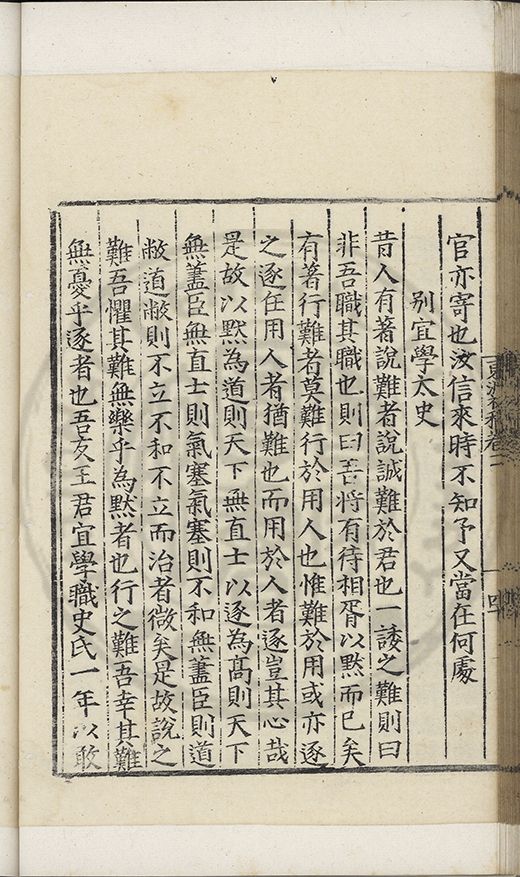 官亦寄也汝信來時不知予又當在何處
别宜學太史
昔人有著說難者說誠難於君也一諉之難則曰
非吾職其職也則曰吾將有待相胥以默而已矣
有著行難者莫難行於用人也惟難於用或亦逐
之逐在用人者猶難也而用於人者逐豈其心哉
是故以默為道則天下無直士以逐為高則天下
無藎臣無直士則氣塞氣塞則不和無藎臣則道
敝道敝則不立不和不立而治者微矣是故說之
難吾懼其難無樂乎為默者也行之難吾幸其難
無憂乎逐者也吾友王君宜學職史氏一年以敢
卷二
四